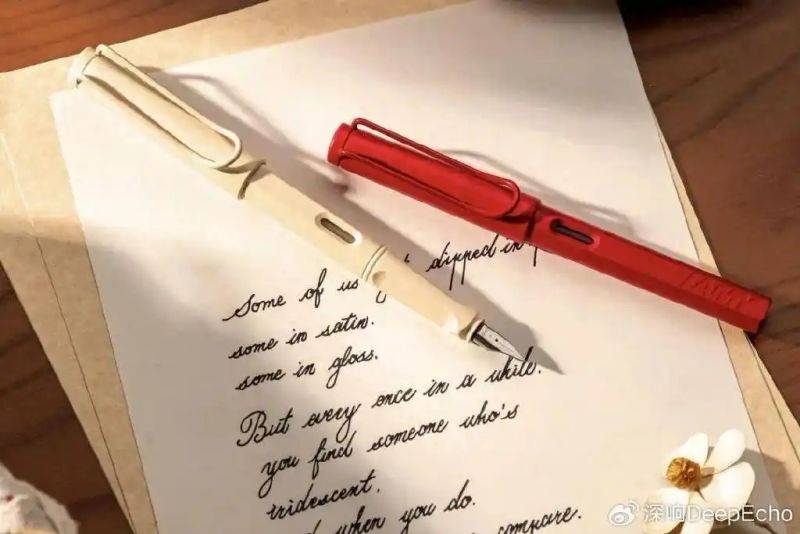 Some of us dipped in
some in satin.
some in gloss.
But every once in a while.
you find someone who's
iridescent.
when you do.
compare.
LAMY
深响DeepEcho